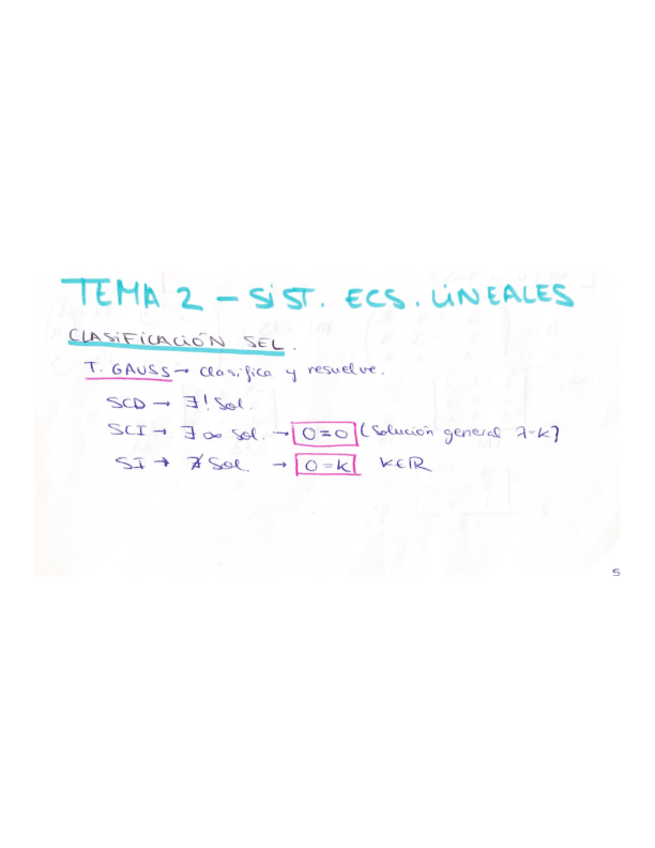 TEMA 2 - SIST. ECS. LINEALES
CLASIFICACIÓN SEL.
T. GAUSS → clasifica y resuelve.
SCD → ∃! Sol.
SCI → ∃ ∞ Sol. → 0=0 (Solución general λ-k)
SI → ∄ Sol → 0=k k∈ℝ
5